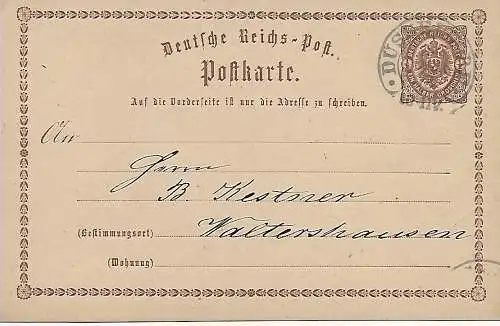 Deutsche Reichs-Post.
Postkarte.
Auf die Vorderseite ist nur die Adresse zu schreiben.
An
Herrn
B. Kestner
(Bestimmungsort) Waltershausen
(Wohnung)